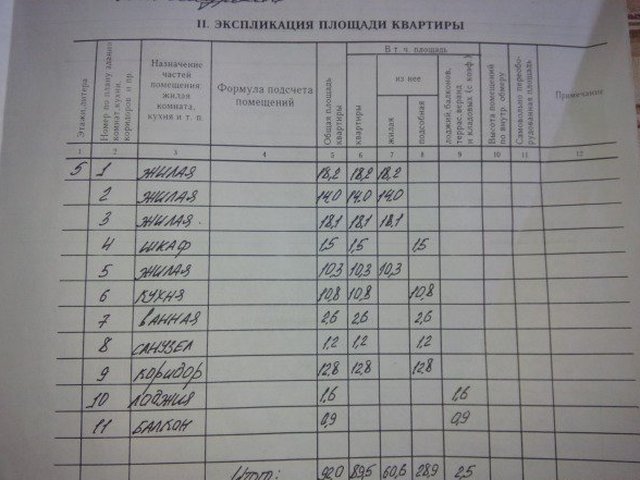 II. ЭКСПЛИКАЦИЯ ПЛОЩАДИ КВАРТИРЫ
Этажи, литера
Номер по плану здания комнат, кухни, коридоров и пр.
Назначение частей помещения жилая комната, кухня и т. п.
Формула подсчета помещений
Общая площадь квартиры
В т. ч. площадь
квартиры
из нее
жилая
подсобная
лоджий, балконов, террас, веранд и кладовых (с коэф.)
Высота помещений по внутр. обмеру
Самовольно переоборудованная площадь
Примечание
1 2 3 4 5 6 7 8 9 10 11 12
5 1 ЖИЛАЯ 18,2 18,2 18,2
2 ЖИЛАЯ 14,0 14,0 14,0
3 ЖИЛАЯ 18,1 18,1 18,1
4 ШКАФ 1,5 1,5 1,5
5 ЖИЛАЯ 10,3 10,3 10,3
6 КУХНЯ 10,8 10,8 10,8
7 ВАННАЯ 2,6 2,6 2,6
8 САНУЗЕЛ 1,2 1,2 1,2
9 КОРИДОР 12,8 12,8 12,8
10 ЛОДЖИЯ 1,6 1,6
11 БАЛКОН 0,9 0,9
Итого: 92,0 89,5 60,6 28,9 2,5